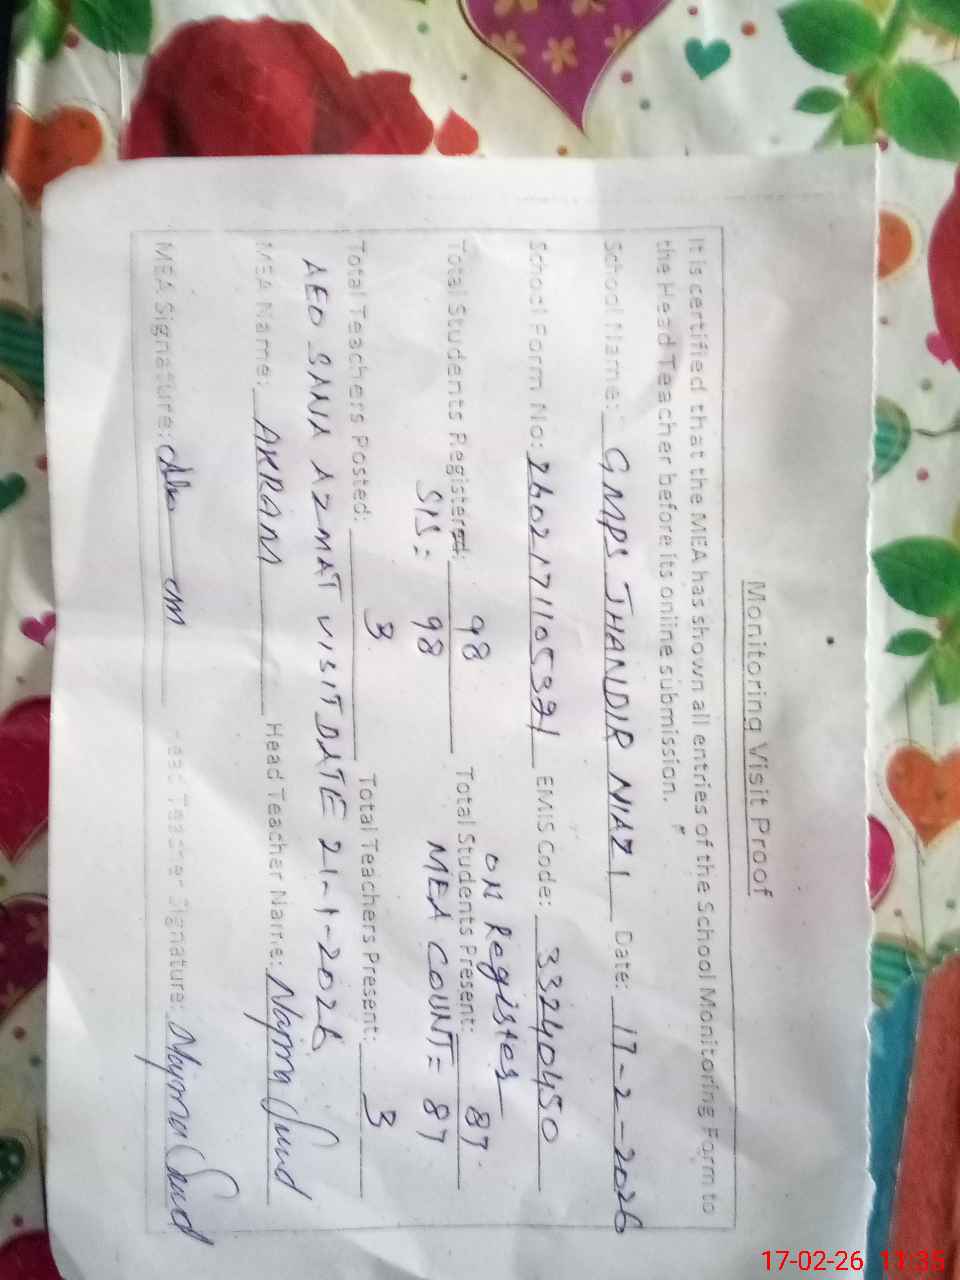 Monitoring Visit Proof
It is certified that the MEA has shown all entries of the School Monitoring Form to
the Head Teacher before its online submission.
School Name: GMPS JHANDIR NIAZI Date: 17-2-2026
School Form No: 2602171105391 EMIS Code: 33240450
ON Register
Total Students Registered: 98 Total Students Present: 87
SIS: 98 MEA COUNT = 87
Total Teachers Posted: 3 Total Teachers Present: 3
AEO SANA AZMAT VISIT DATE 21-1-2026
MEA Name: AKRAM Head Teacher Name: Najma
MEA Signature: Head Teacher Signature: Najma
17-02-26 11:35